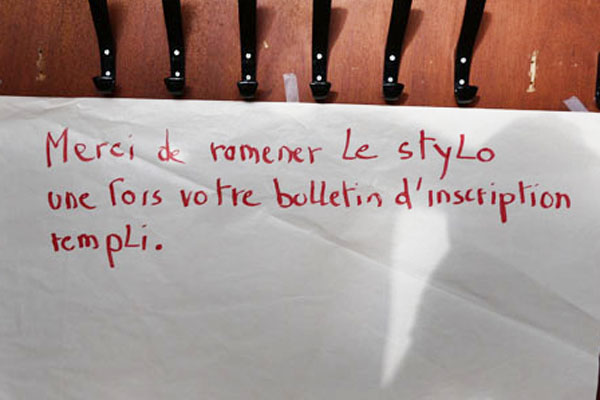 Merci de ramener le stylo
une fois votre bulletin d'inscription
rempli.